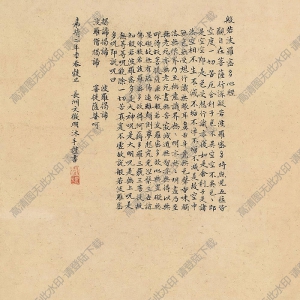 般若波羅蜜多心經
觀自在菩薩行深般若波羅蜜多時照見五蘊皆
空度一切苦厄舍利子色不異空空不異色色即
是空空即是色受想行識亦復如是舍利子是諸
法空相不生不滅不垢不淨不增不減是故空中
無色無受想行識無眼耳鼻舌身意無色聲香味觸
法無眼界乃至無意識界無無明亦無無明盡乃至
無老死亦無老死盡無苦集滅道無智亦無得以無所
得故菩提薩埵依般若波羅蜜多故心無罣礙無
罣礙故無有恐怖遠離顛倒夢想究竟涅槃三世諸
佛依般若波羅蜜多故得阿耨多羅三藐三菩提故
知般若波羅蜜多是大神咒是大明咒是無上咒是
無等等咒能除一切苦真實不虛故說般若波羅蜜
多咒即說咒曰
揭諦揭諦 波羅揭諦
波羅僧揭諦 菩提薩婆訶
嘉靖二十 長洲文徵明沐手謹書